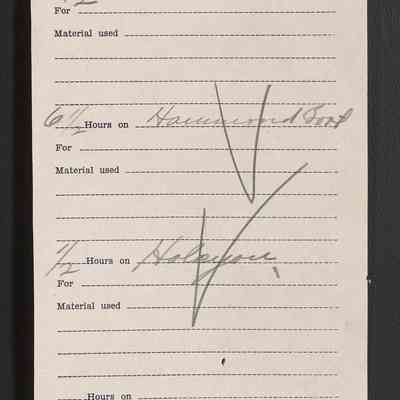 For
Material used
6 1/2 Hours on Hammond Boat
For
Material used
1/2 Hours on Halcyon
For
Material used
Hours on